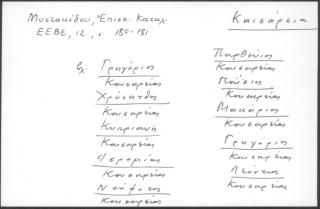 Μυστακίδου, "Επισκ. Καταλ.
ΕΕΒΣ, 12, 180-181
Καισάρεια
Γρηγόριος
Καισαρείας
Χρύσανθος
Καισαρείας
Κυπριανός
Καισαρείας
Ιερεμίας
Καισαρείας
Νεόφυτος
Καισαρείας
Παρθένιος
Καισαρείας
Παΐσιος
Καισαρείας
Μακάριος
Καισαρείας
Γρηγόριος
Καισαρείας
Λεόντιος
Καισαρείας